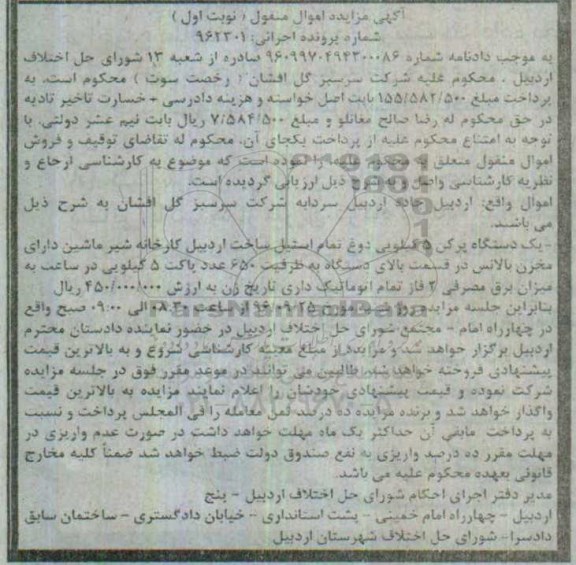 آگهی مزایده اموال منقول ( نوبت اول )
شماره پرونده اجرائی: ۹۶۲۳۰۱
به موجب دادنامه شماره ۹۶۰۹۹۷۰۴۹۴۳۰۰۰۸۶ صادره از شعبه ۱۳ شورای حل اختلاف
اردبیل ، محکوم علیه شرکت سرسبز گل افشان ( رخصت سوت ) محکوم است. به
پرداخت مبلغ ۱۵۵/۵۸۲/۵۰۰ بابت اصل خواسته و هزینه دادرسی + خسارت تاخیر تادیه
در حق محکوم له رضا صالح مغانلو و مبلغ ۷/۵۸۴/۵۰۰ ریال بابت نیم عشر دولتی. با
توجه به امتناع محکوم علیه از پرداخت یکجای آن، محکوم له تقاضای توقیف و فروش
اموال منقول متعلق به محکوم علیه را نموده است که موضوع به کارشناسی ارجاع و
نظریه کارشناسی واصل و به شرح ذیل ارزیابی گردیده است.
اموال واقع: اردبیل جاده اردبیل سردابه شرکت سرسبز گل افشان به شرح ذیل
می باشند.
-یک دستگاه پرکن ۵ کیلویی دوغ تمام استیل ساخت اردبیل کارخانه شیر ماشین دارای
مخزن بالانس در قسمت بالای دستگاه به ظرفیت ۶۵۰ عدد پاکت ۵ کیلویی در ساعت به
میزان برق مصرفی ۲ فاز تمام اتوماتیک داری تاریخ زن به ارزش ۴۵۰/۰۰۰/۰۰۰ ریال
بنابراین جلسه مزایده در مورخه ۹۶/۰۹/۲۵ از ساعت ۰۸:۳۰ الی ۰۹:۰۰ صبح واقع
در چهارراه امام - مجتمع شورای حل اختلاف اردبیل در حضور نماینده دادستان محترم
اردبیل برگزار خواهد شد و مزایده از مبلغ معینه کارشناسی شروع و به بالاترین قیمت
پیشنهادی فروخته خواهد شد. طالبین می توانند در موعد مقرر فوق در جلسه مزایده
شرکت نموده و قیمت پیشنهادی خودشان را اعلام نمایند مزایده به بالاترین قیمت
واگذار خواهد شد و برنده مزایده ده درصد ثمن معامله را فی المجلس پرداخت و نسبت
به پرداخت مابقی آن حداکثر یک ماه مهلت خواهد داشت در صورت عدم واریزی در
مهلت مقرر ده درصد واریزی به نفع صندوق دولت ضبط خواهد شد ضمناً کلیه مخارج
قانونی بعهده محکوم علیه می باشد.
مدیر دفتر اجرای احکام شورای حل اختلاف اردبیل - پنج
اردبیل - چهارراه امام خمینی - پشت استانداری - خیابان دادگستری - ساختمان سابق
دادسرا- شورای حل اختلاف شهرستان اردبیل